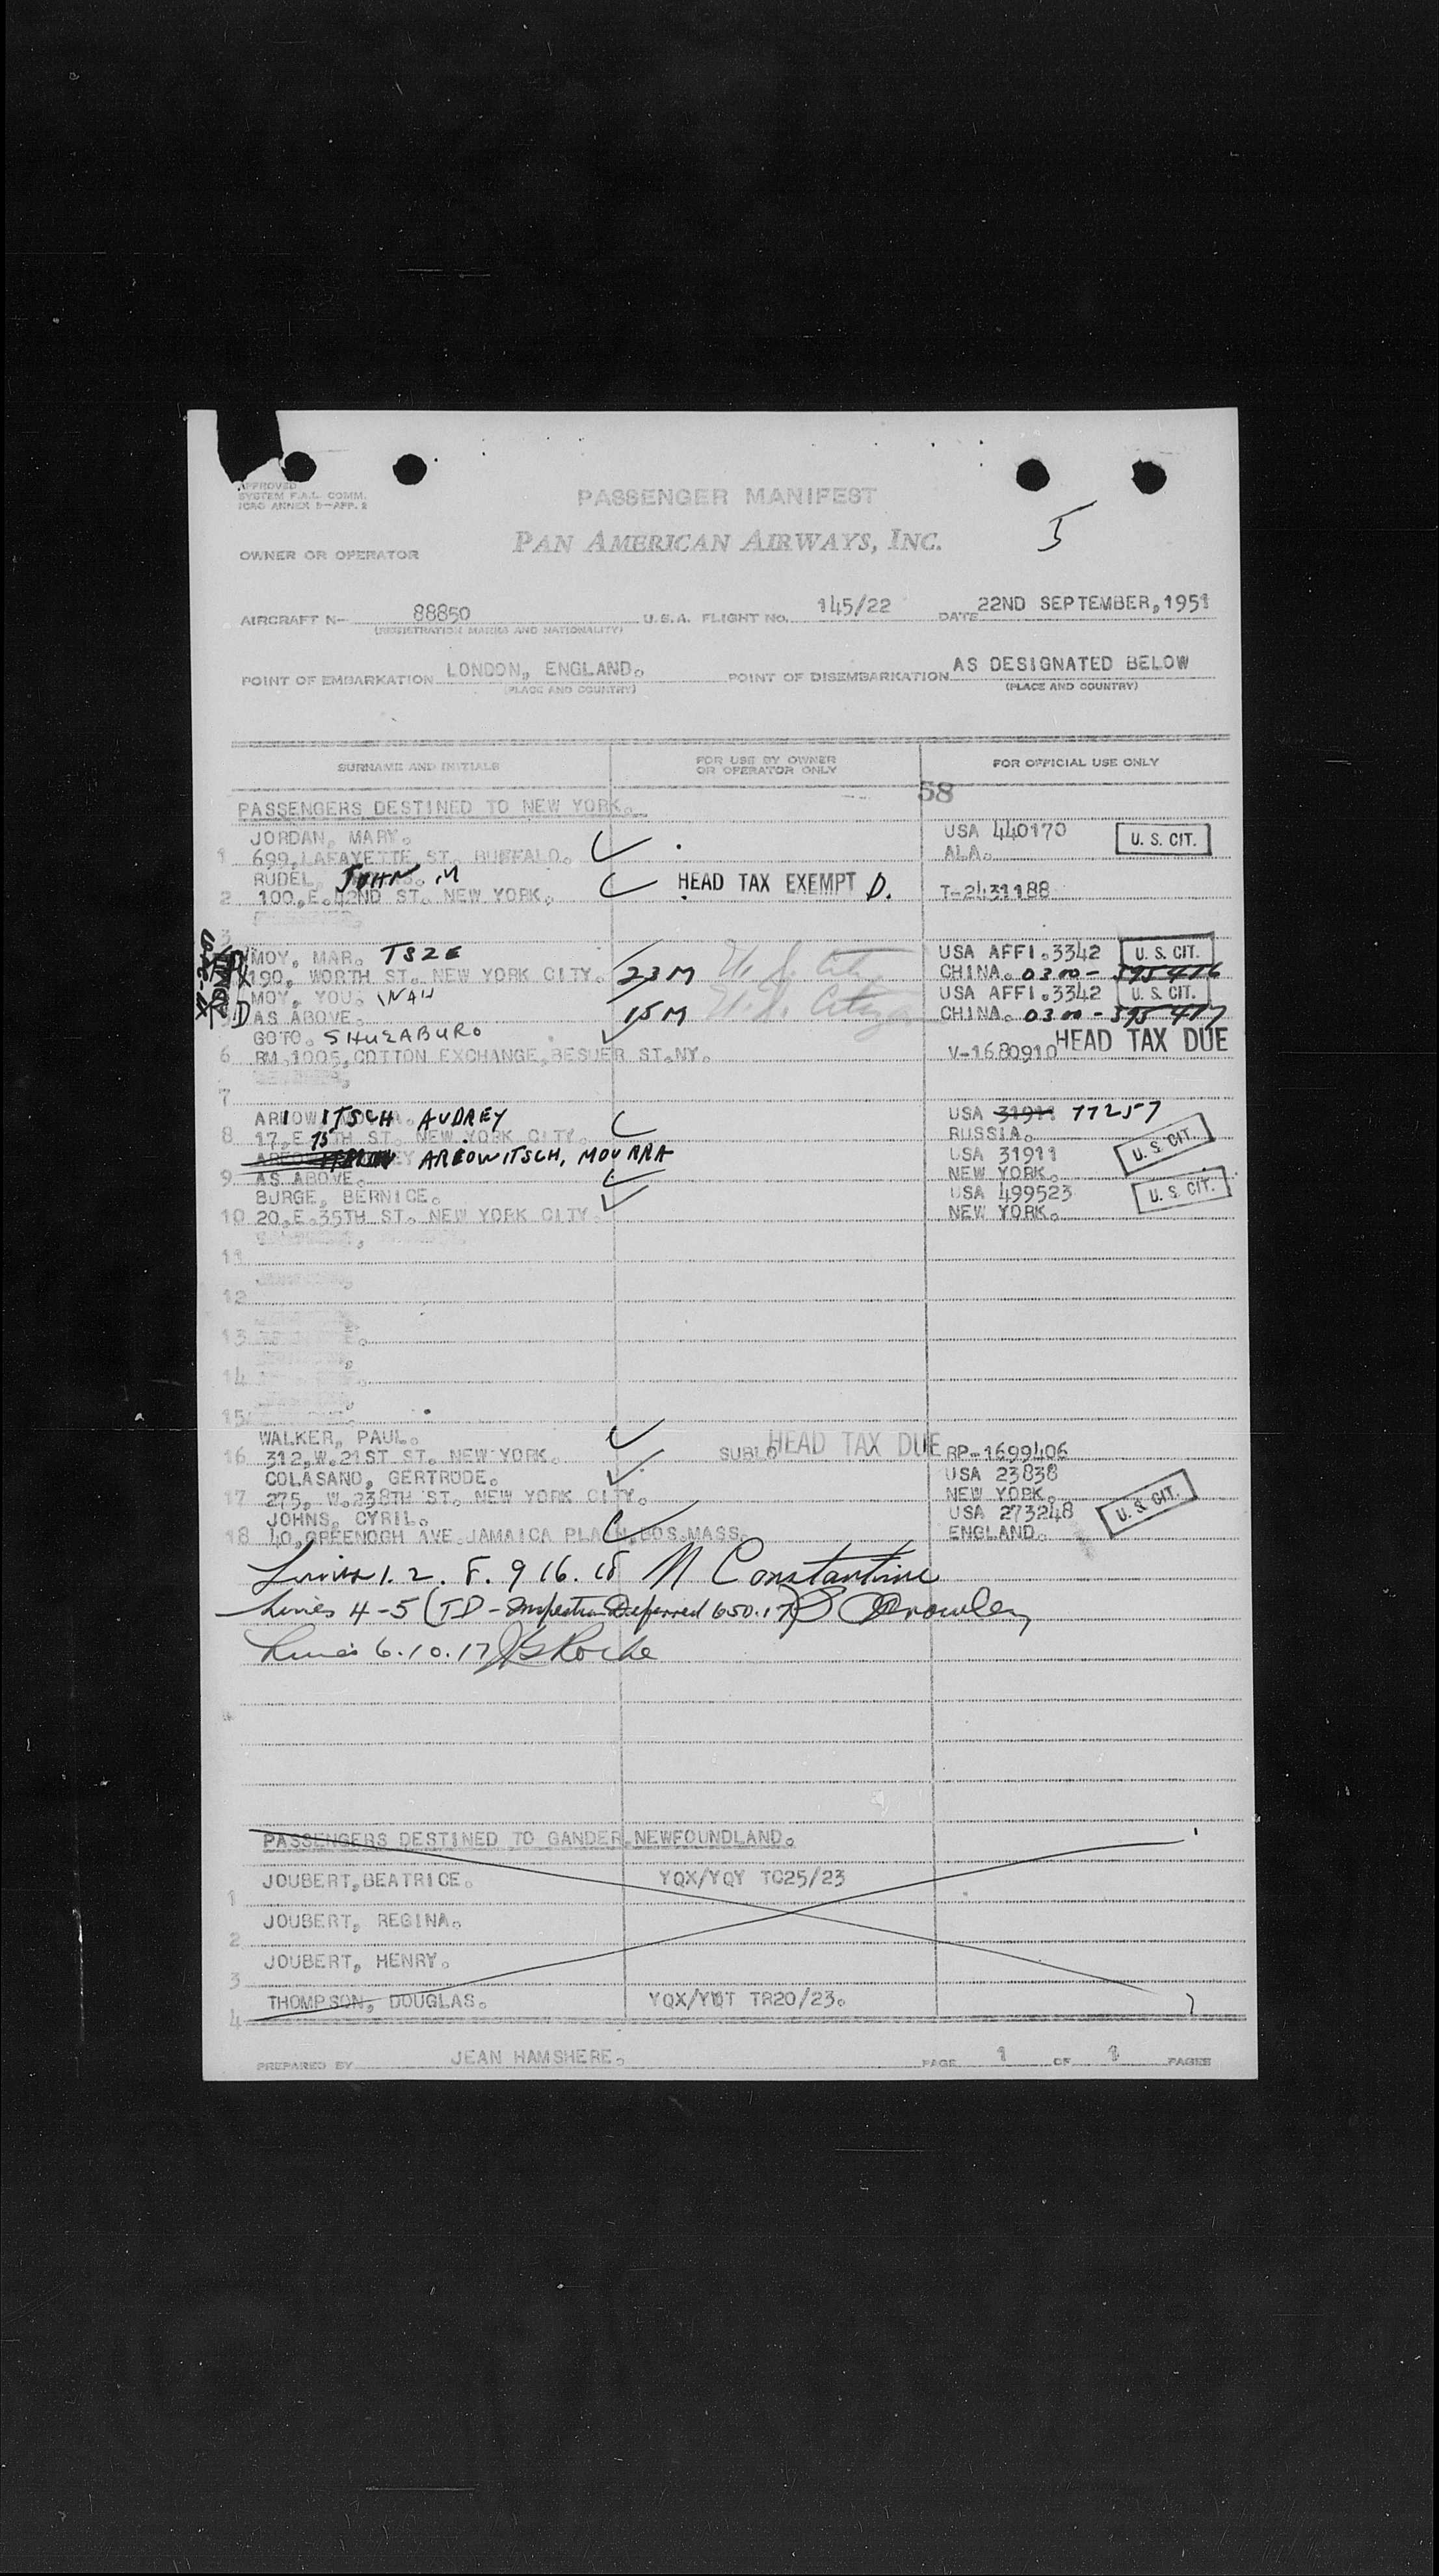 APPROVED
SYSTEM F.A.L. COMM.
ICAO ANNEX 9-APP. 2
PASSENGER MANIFEST
PAN AMERICAN AIRWAYS, INC.
5
OWNER OR OPERATOR
AIRCRAFT N- 88850 U.S.A. FLIGHT NO. 145/22 DATE 22ND SEPTEMBER, 1951
(REGISTRATION MARKS AND NATIONALITY)
POINT OF EMBARKATION LONDON, ENGLAND. POINT OF DISEMBARKATION AS DESIGNATED BELOW
(PLACE AND COUNTRY) (PLACE AND COUNTRY)
SURNAME AND INITIALS FOR USE BY OWNER OR OPERATOR ONLY FOR OFFICIAL USE ONLY
58
PASSENGERS DESTINED TO NEW YORK.
JORDAN, MARY. USA 440170 U. S. CIT.
1 699, LAFAYETTE ST. BUFFALO. ALA.
RUDEL, JOHN M
2 100, E. 42ND ST. NEW YORK. HEAD TAX EXEMPT D. T-2431188
3
MOY, MAR. TSZE USA AFFI. 3342 U. S. CIT.
190, WORTH ST. NEW YORK CITY. 23 M U. S. Citz CHINA. 0300-595416
MOY, YOU. WAH USA AFFI. 3342 U. S. CIT.
D AS ABOVE. 15 M U. S. Citizen CHINA. 0300-595417
GOTO. SHUZABURO HEAD TAX DUE
6 RM. 1005, COTTON EXCHANGE, BESUER ST. NY. V-1680910
7
AREOWITSCH AUDREY USA 31911 77257
8 17, E 75TH ST. NEW YORK CITY. RUSSIA.
AREOWITSCH, MOURRA USA 31911 U. S. CIT.
9 AS ABOVE. NEW YORK.
BURGE, BERNICE. USA 499523 U. S. CIT.
10 20, E. 35TH ST. NEW YORK CITY. NEW YORK.
11
12
13
14
15
WALKER, PAUL.
16 312, W. 21ST ST. NEW YORK. SUBLO HEAD TAX DUE RP-1699406
COLASANO, GERTRUDE. USA 23838
17 275, W. 238TH ST. NEW YORK CITY. NEW YORK.
JOHNS, CYRIL. USA 273248 U. S. CIT.
18 40, GREENOGH AVE. JAMAICA PLAIN, BOS. MASS. ENGLAND.
Lines 1. 2. 8. 9 16. 18 N Constantine
Lines 4-5 (TD - Inspection Deferred 650.17) Crowley
Lines 6. 10. 17 Roche
PASSENGERS DESTINED TO GANDER, NEWFOUNDLAND.
JOUBERT, BEATRICE. YQX/YQY TC25/23
1
JOUBERT, REGINA.
2
JOUBERT, HENRY.
3
THOMPSON, DOUGLAS. YQX/YQT TR20/23.
4
PREPARED BY JEAN HAMSHERE. PAGE 1 OF 1 PAGES